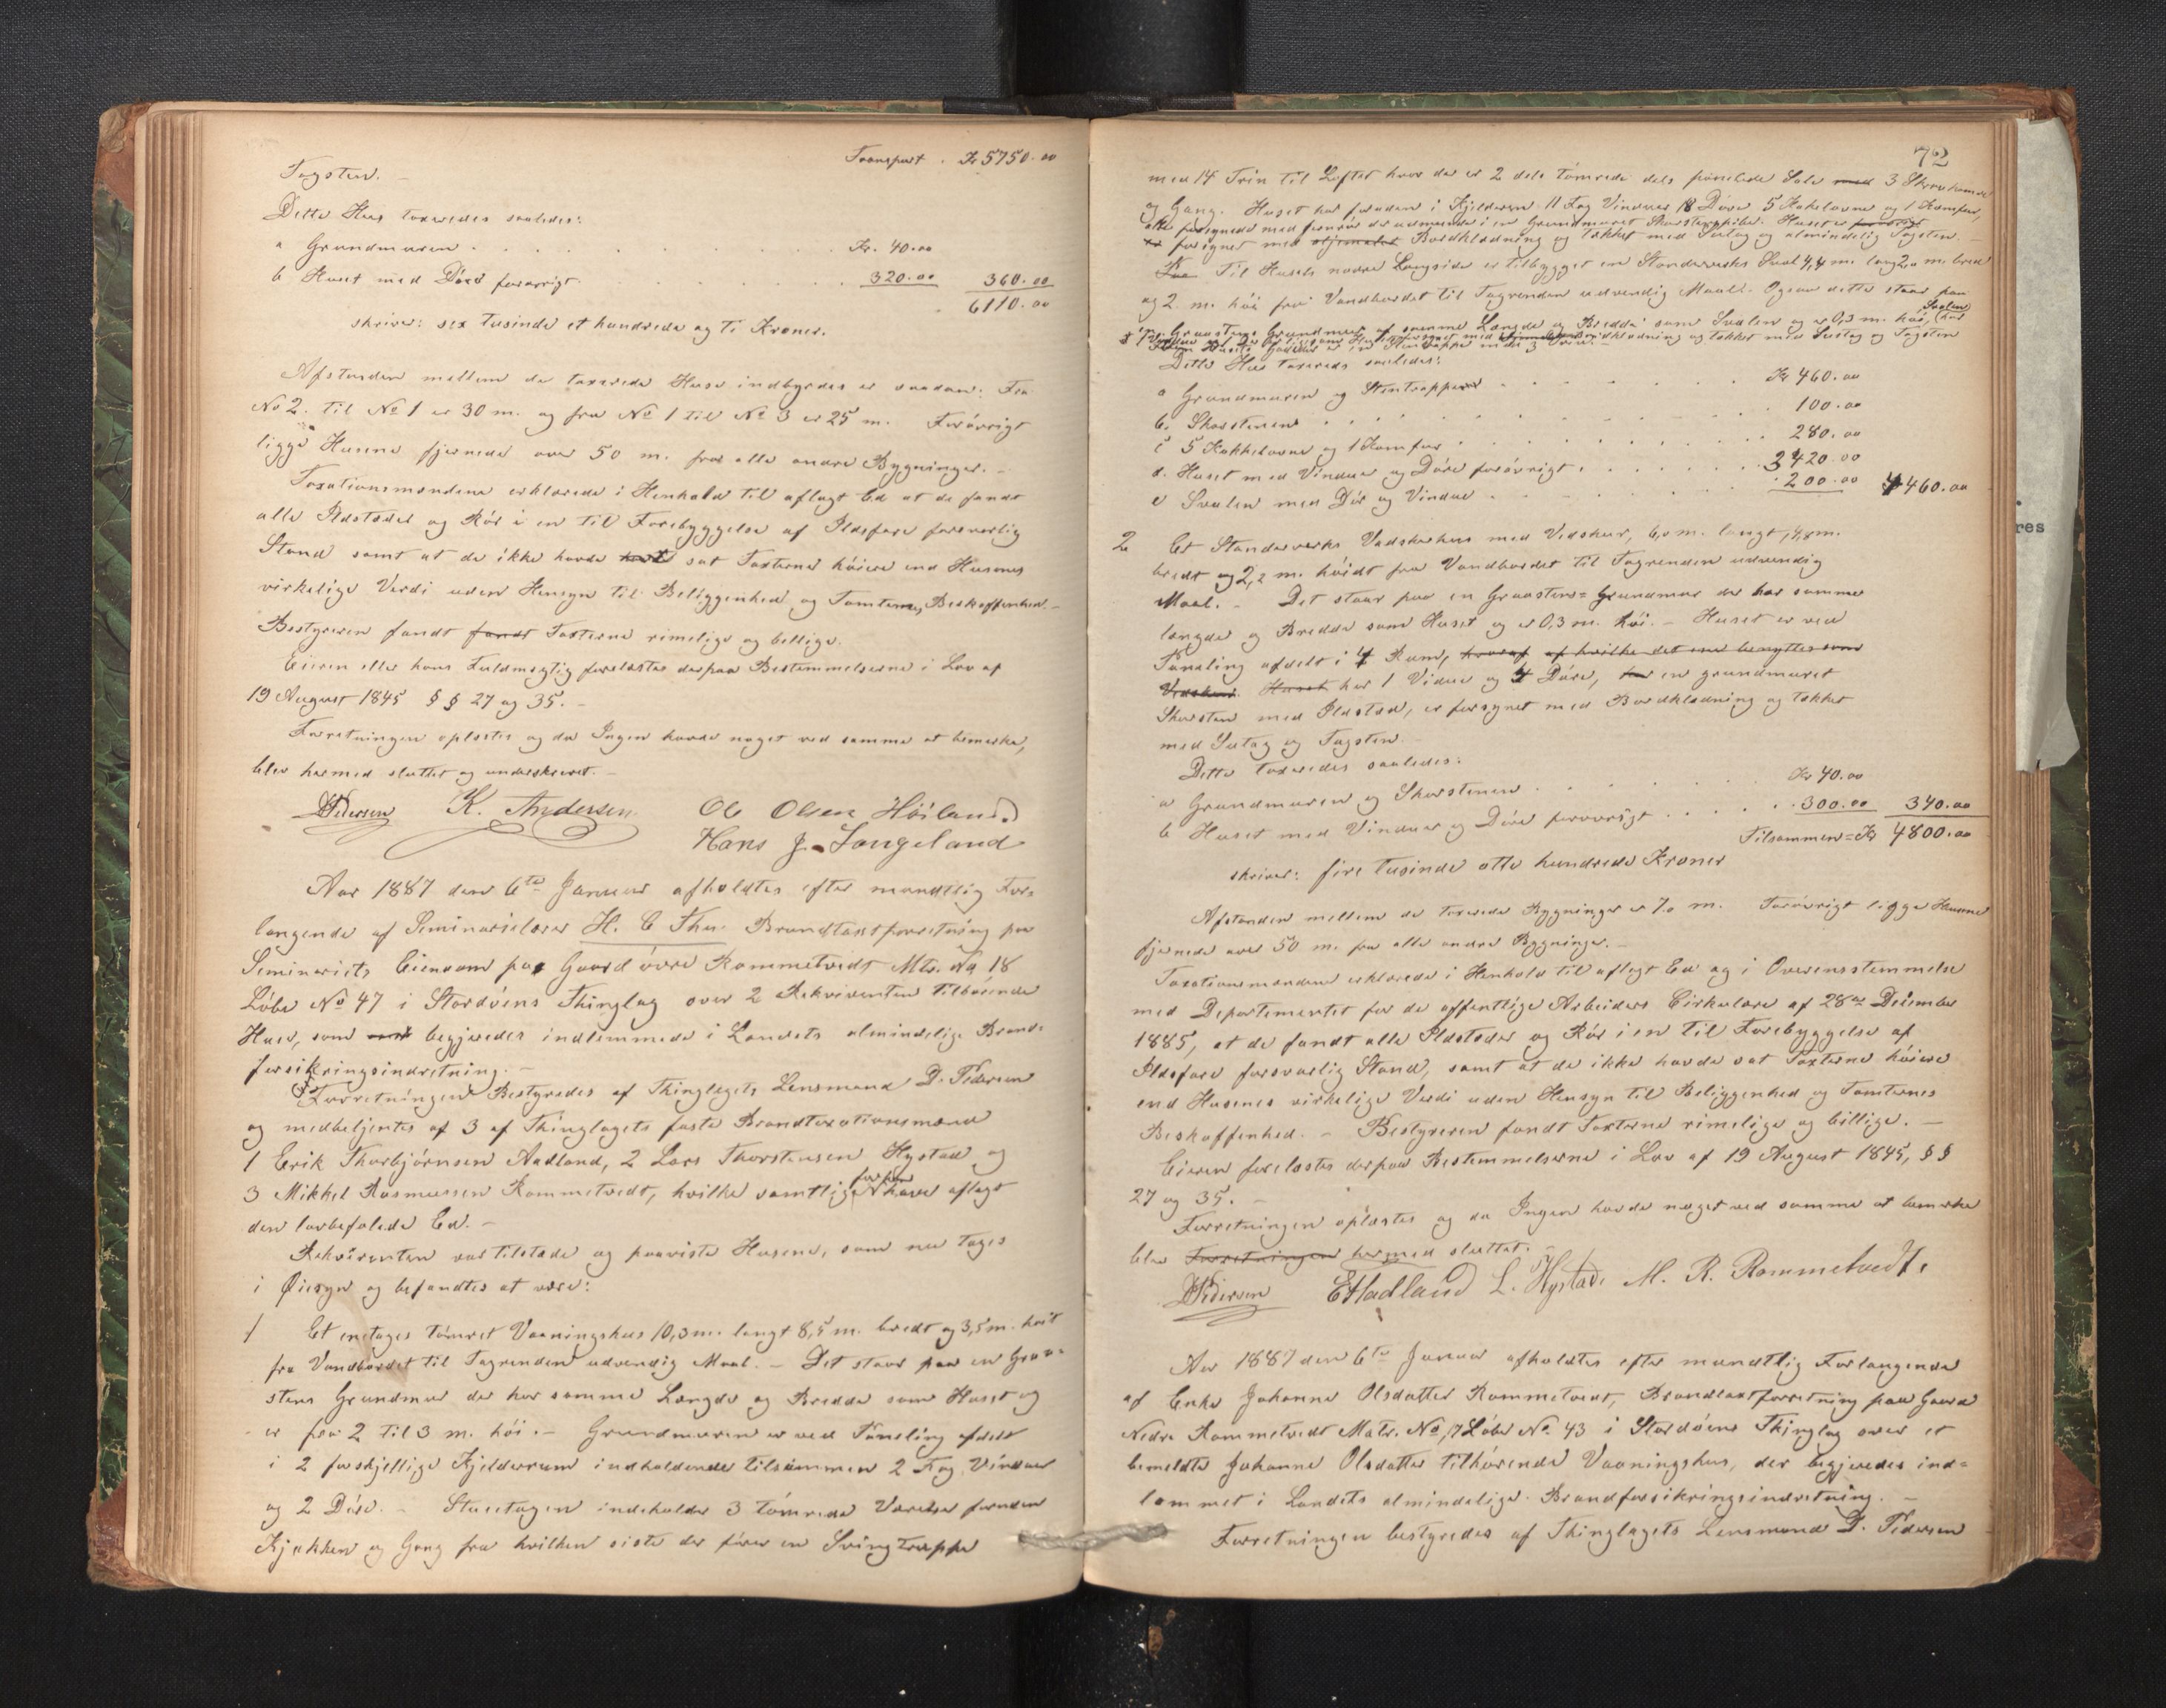 Transport . Kr 5750.00
Tagsten. –
Dette Hus taxeredes saaledes:
a Grundmuren . . . Kr. 40.00
b Huset med Döre forövrigt . . . 320.00 360.00
6110.00
skriver: sex tusinde et hundrede og ti Kroner.
Afstanden mellem de taxerede Huse indbyrdes er saadan: Fra
No 2. til No 1 er 30 m. og fra No 1 til No 3 er 25 m. Forövrigt
ligge Husene fjernede over 50 m. fra alle andre Bygninger. –
Taxationsmændene erklærede i Henhold til aflagt Ed at de fandt
alle Ildsteder og Rör i en til Forebyggelse af Ildsfare forsvarlig
Stand samt at de ikke havde sat Taxterne höiere end Husenes
virkelige Verdi uden Hensyn til Beliggenhed og Tomternes Beskaffenhed. –
Bestyreren fandt fandt Taxterne rimelige og billige.
Eieren eller hans Fuldmægtig forelæstes derpaa Bestemmelserne i Lov af
19 August 1845 § § 27 og 35. –
Forretningen oplæstes og da Ingen havde noget ved samme at bemærke,
blev hermed sluttet og underskrevet. –
DPedersen K. Andersen Ole Olsen Höiland
Hans J. Langeland
Aar 1887 den 6te Januar afholdtes efter mundtlig For-
langende af Seminarielærer H. C Thu. Brandtaxtforretning paa
Seminariets Eiendom paa Gaard övre Rommetvedt Mtr. No 18
Löbe No 47 i Stordöens Thinglag over 2 Rekvirenten tilhörende
Huse, som begjæredes indlemmede i Landets almindelige Brand-
forsikringsindretning. –
Forretningen Bestyredes af Thinglagets Lensmand D. Pedersen
og medbetjentes af 3 af Thinglagets faste Brandtaxationsmænd
1 Erik Thorbjörnsen Aadland, 2 Lars Thorstensen Hystad og
3 Mikkel Rasmussen Rommetvedt, hvilke samtlige forhen have aflagt
den lovbefalede Ed. –
Rekvirenten var tilstede og paaviste Husene, som nu toges
i Öiesyn og befandtes at være:
1 Et enetages tömret Vaaningshus 10,3 m. langt 8,5 m. bredt og 3,5 m. höit
fra Vandbordet til Tagrenden udvendig Maal. – Det staar paa en Graa-
stens Grundmur der har samme Længde og Bredde som Huset og
er fra 2 til 3 m. höi. – Grundmuren er ved Paneling afdelt
i 2 forskjellige Kjelderrum indholdende tilsammen 2 Fag Vinduer
og 2 Döre. – Stueetagen indeholder 3 tömrede Værelser foruden
Kjökken og Gang fra hvilken siste der förer en Svingtrappe
72
med 14 Trin til Loftet hvor der er 2 dels tömrede dels panelede Sale med 3 Skraakamre
og Gang. Huset har foruden i Kjelderen 11 Fag Vinduer 18 Döre 5 Kakelovne og 1 Komfur,
alle forsynede med Jernrör der udmunde i en Grundmuret Skorstenspibe. Huset er forövrigt
forsynet med Bordklædning og tækket med Sutag og almindelig Tagsten. –
Til Husets nordre Langside er tilbygget en Standerværks Sval 4,4 m. lang 2,0 m. bred
og 2 m. höi fra Vandbordet til Tagrenden udvendig Maal. Ogsaa dette staar paa
en Graastens Grundmur af samme Længde og Bredde som Svalen og er 0,3 m. höi, Svalen har
1 Vindue og 1 Dör er ligesom Huset forsynet med Bordklædning og tækket med Sutag og Tagsten
Dette Hus taxeredes saaledes:
a Grundmuren og Stentrapperne . . . Kr 460.00
b. Skorstenen . . . 100.00
c 5 Kakkelovne og 1 Komfur . . . 280.00
d. Huset med Vinduer og Döre forövrigt . . . 3420.00
e Svalen med Dör og Vindue . . . 200.00 4460.00
2 Et Standerværks Vadskerhus med Vedskur, 6,0 m. langt, 4,8 m.
bredt og 2,2 m. höidt fra Vandbordet til Tagrenden udvendig
Maal. – Det staar paa en Graastens-Grundmur der har samme
længde og Bredde som Huset og er 0,3 m. höi. – Huset er ved
Paneling afdelt i 4 Rum, hvoraf af hvilke det ene benyttes som
Vedskur. Huset har 1 Vidue og 4 Döre, har en grundmuret
Skorsten med Ildsted, er forsynet med Bordklædning og tækket
med Sutag og Tagsten
Dette taxeredes saaledes:
a Grundmuren og Skorstenen . . . Kr 40.00
b Huset med Vinduer og Döre forövrigt . . . 300.00 340.00
Tilsammen = Kr 4800.00
skriver: fire tusinde otte hundrede Kroner
Afstanden mellem de taxerede Bygninger er 7,0 m. Forövrigt ligge Husene
fjernede over 50 m. fra alle andre Bygninger. –
Taxationsmændene erklærede i Henhold til aflagt Ed og i Overensstemmelse
med Departementet for de offentlige Arbeiders Cirkulære af 28de December
1885, at de fandt alle Ildsteder og Rör i en til Forebyggelse af
Ildsfare forsvarlig Stand, samt at de ikke havde sat Taxterne höiere
end Husenes virkelige Verdi uden Hensyn til Beliggenhed og Tomternes
Beskaffenhed. – Bestyreren fandt Taxterne rimelige og billige. –
Eieren forelæstes derpaa Bestemmelserne i Lov af 19 August 1845, § §
27 og 35. –
Forretningen oplæstes og da Ingen havde noget ved samme at bemærke
blev Forretningen hermed sluttet. –
DPedersen EAadland L. Hystad. M. R. Rommetvedt.
Aar 1887 den 6te Januar afholdtes efter mundtlig Forlangende
af Enke Johanne Olsdatter Rommetvedt, Brandtaxtforretning paa Gaard
Nedre Rommetvedt Matr. No 17 Löbe No 43 i Stordöens Thinglag over et
bemeldte Johanne Olsdatter tilhörende Vaaningshus, der begjæredes ind-
lemmet i Landets almindelige Brandforsikringsindretning. –
Forretningen bestyredes af Thinglagets Lensmand D. Pedersen
res